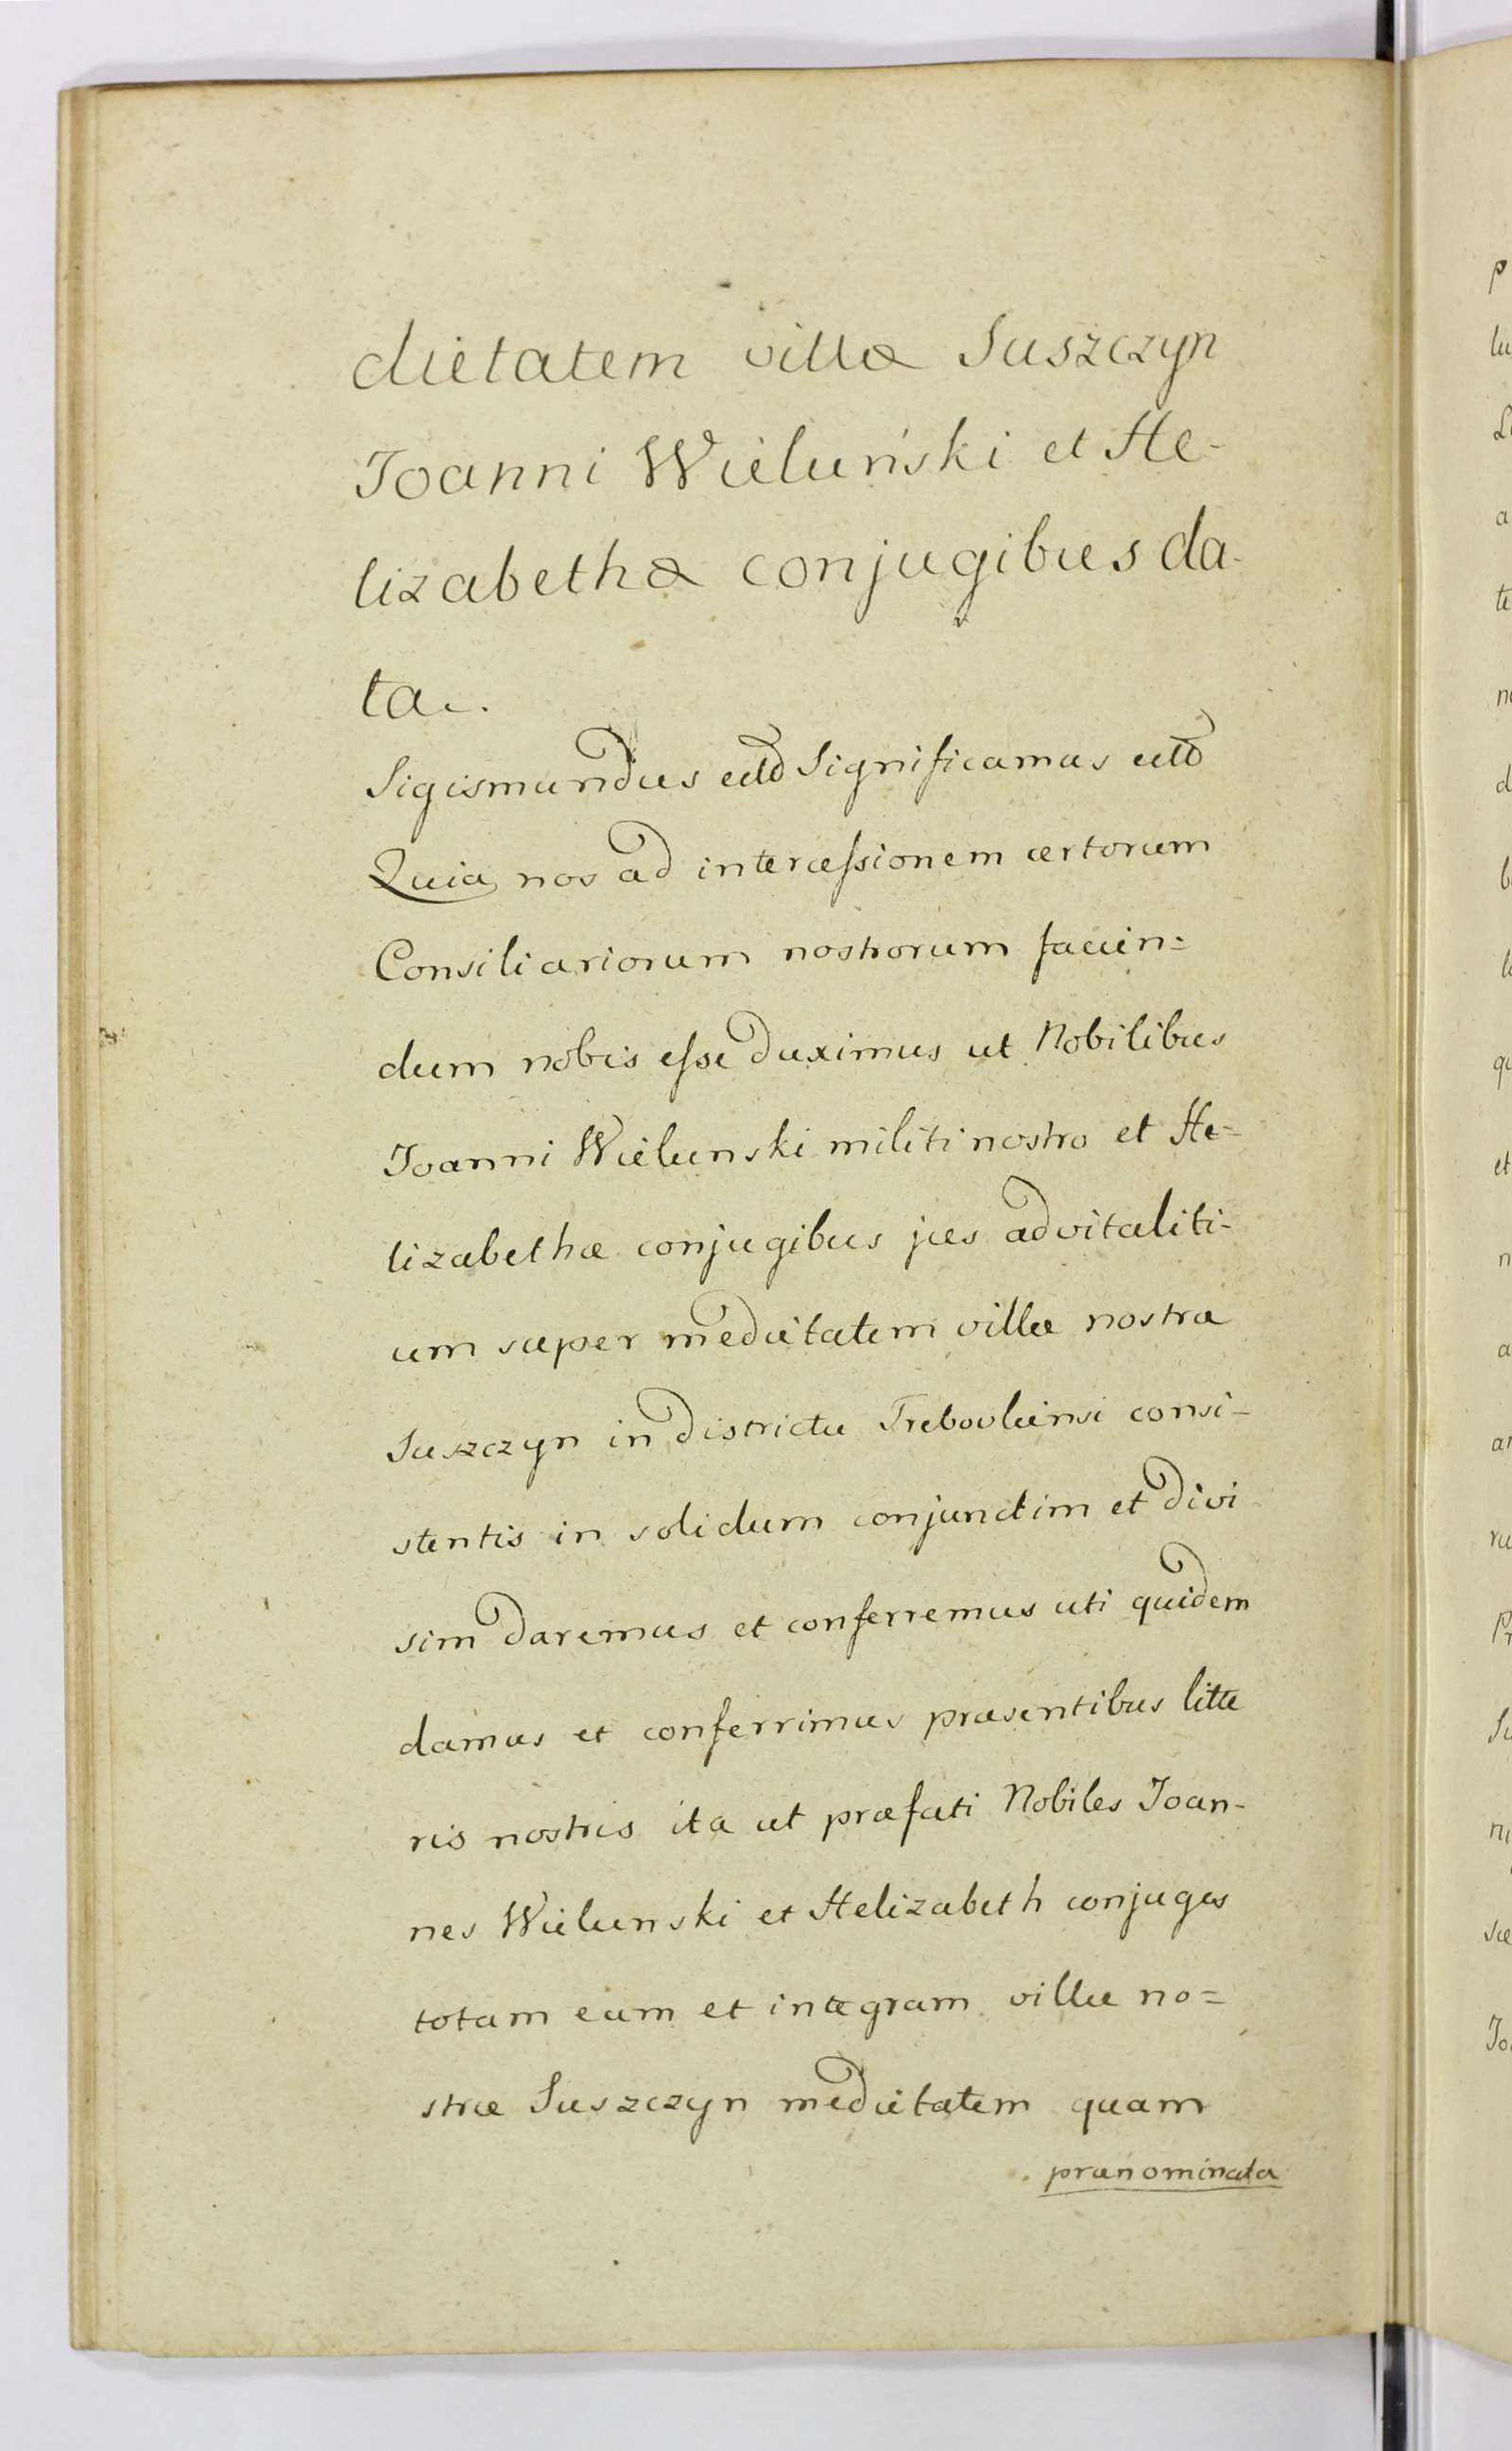 dietatem villæ Suszczyn
Joanni Wieluński et He-
lizabethæ conjugibus da-
ta.
Sigismundus Significamus
Quia nos ad intercessionem certorum
Consiliariorum nostrorum facien=
dum nobis esse duximus ut Nobilibus
Joanni Wielunski militi nostro et He=
lizabethæ conjugibus jus advitaliti-
um super medietatem villæ nostræ
Suszczyn in districtu Trebovliensi consi-
stentis in solidum conjunctim et divi
sim daremus et conferremus uti quidem
damus et conferrimus præsentibus litte
ris nostris ita ut præfati Nobiles Joan-
nes Wielunski et Helizabeth conjuges
totam eam et integram villæ no=
stræ Suszczyn medietatem quam
prænominata